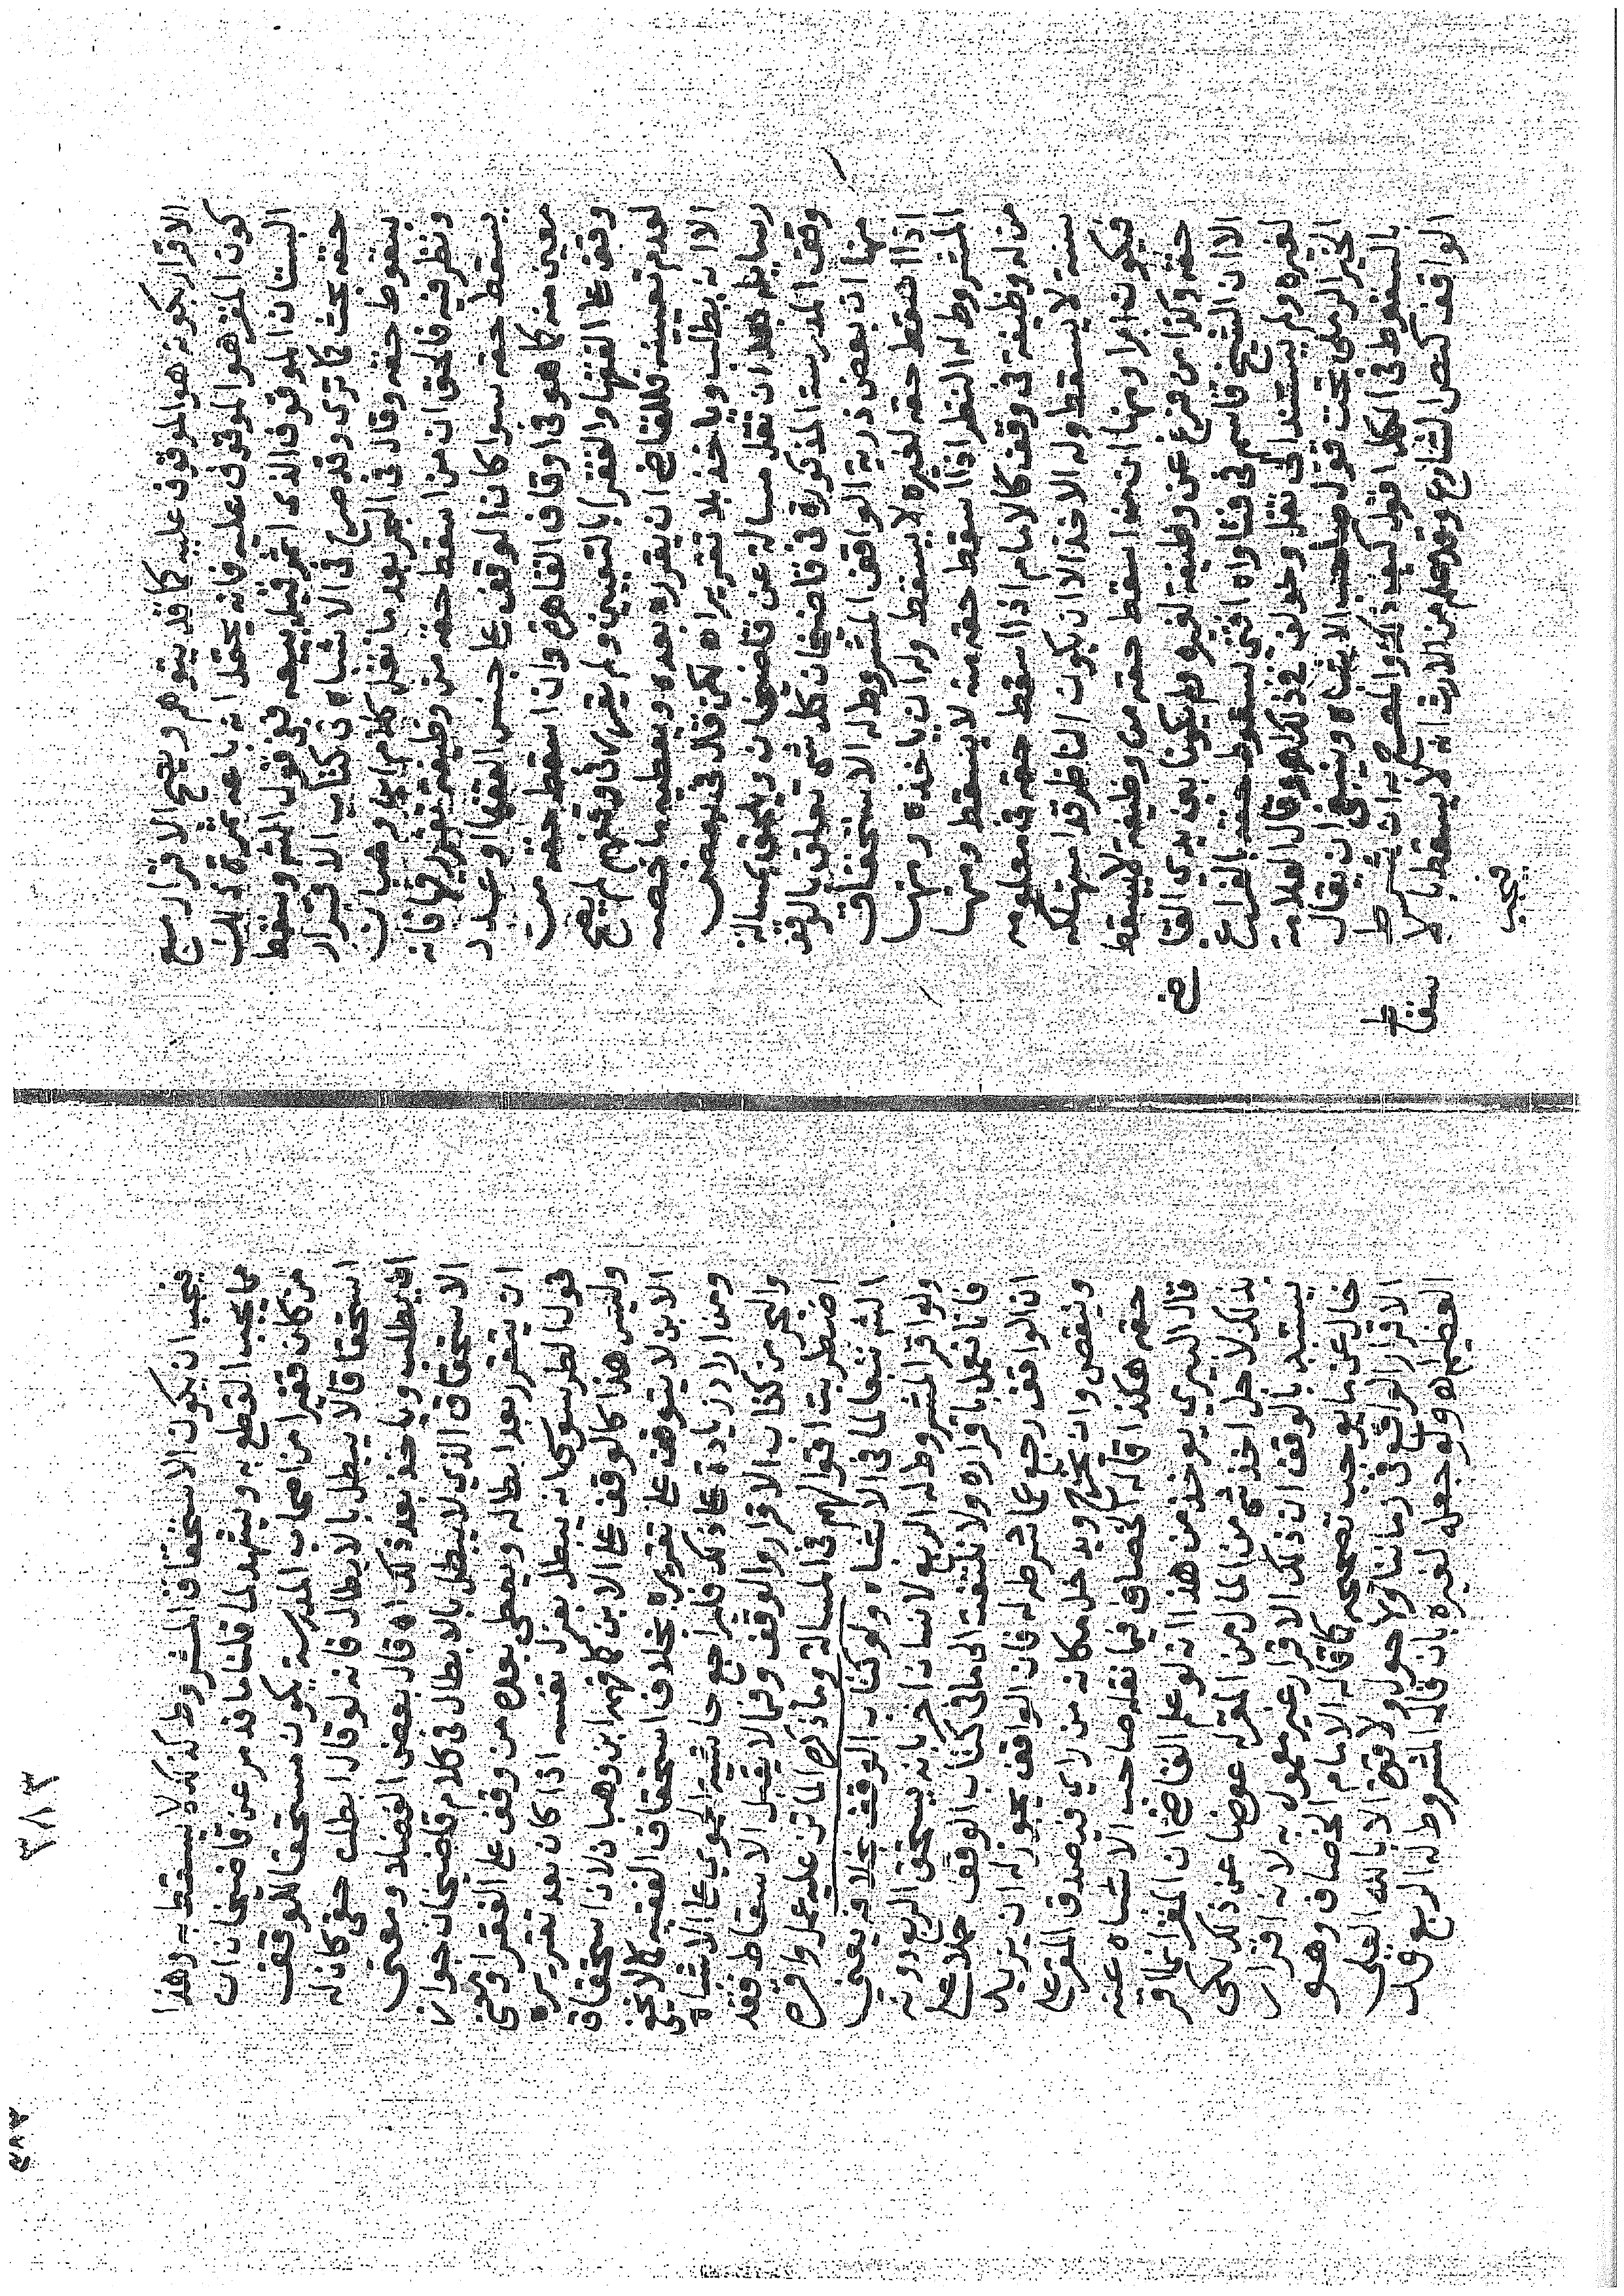 الاقرار بكونه هو الموقوف عليه كما قد يتوهم ويصح الاقرار مع
كون المقر هو الموقوف عليه فانه يحتمل انه باعه ثمرة ذلك
البستان الموقوف الذي اثمر قبل بيعه ففي قول المشروسقط
حقه بحث كما ترى وقد صرح في الاشباه في كتاب الاقرار
بسقوط حقه وقال في البحر بعد ما نقل كلام ابن وهبان
ونظر فيه فالحق ان من اسقط حقه من وظيفة تقرر فيها فانه
يسقط حقه سوا كان الوقف على جنس الفقها او عدد
معين منه كما هو في اوقاف القاهرة وان اسقط حقه من
وقف على الفقها والفقرا بالتعيين ولم يقرر في وقفهم لم يصح
لعدم تعيينه فللقاضي ان يقرره بعده ويعطيه ما خصه
الا انه يطلب وياخذ بلا تقرير اه لكن قال في بعض
رسايله بعد ان نقل مسالة عن قاضيخان ويلحق بمسالة
وقف المدرسة المذكورة في قاضيخان كل شي تعلق بالوقف
منها ان بعض ذرية الواقف المشروط له الاستحقاق
اذا اسقط حقه لغيره لا يسقط وله ان ياخذه ومنها
المشروط له النظر اذا اسقط حقه منه لا يسقط ومنها
من له وظيفة في وقف كالامام اذا اسقط حقه في معلومه
سنة لا يسقط وله الاخذ الا ان يكون الناظر قد استهلكه
فيكون ابرا ومنها ان من اسقط حقه من وظيفة لا يسقط
حقه وكذا من فرغ عن وظيفة لغيره ولم يكونا بين يدي القا
ضي
الا ان الشيخ قاسم في فتاواه افتى بسقوط حقه بالفراغ
لغيره ولم يستند الى نقل وخولف في ذلك اه وقال العلامة
الخير الرملي تحت قول صاحب الاشباه وينبغي ان يقال
بالسقوط في الكل اقول كيف ذلك والمصرح به ان شرط
الواقف كنص الشارع وقد علم من الارث انه لا يسقط بالا
سقاط
فيجب
٣٨٣
فيجب ان يكون الاستحقاق المشروط كذلك لا يسقط به وهذا
مما يجب القطع به ويشهد لما قلنا ما قد مر عن قاضيخان ان
من كان فقيرا من اصحاب المدرسة يكون مستحقا للوقف
استحقاقا لا يبطل بالابطال فانه لو قال ابطلت حقي كان له
ان يطلب وياخذ بعد ذلك اه قال بعض الفضلا ومعنى
الاستحقاق الذي لا يبطل بالابطال في كلام قاضيخان جواز
ان يتقرر بعد ابطاله ويعطى بعده من وقف على الفقرا ومعنى
قول الطرسوسي انه يبطل بعزل نفسه اذا كان بعد تقريره
وليس هذا كالوقف على الابن كما فهم ابن وهبان لان استحقاق
الابن لا يتوقف على تقريره بخلاف استحقاق الفقيه كما لا يخفى
ومن اراد زيادة على ذلك فليراجع حاشية الحموي على الاشباه
والبحر من كتاب الاقرار والوقف وفيما لا يقبل الاسقاط فقد
اضطربت اقوالهم في المسالة وما ذكره الماتن عليه عمل واقره
الشر تبعا لما في الاشباه ولو كتاب الوقف بخلافه يعني
ولو اقر المشروط له الريع لانسان اخر بانه يستحق الريع دونه
فانا نعمل باقراره ولا نلتفت الى ما في كتاب الوقف حملا على
ان الواقف رجع عما شرطه له فان الواقف يجوز له ان يزيد
وينقص وان يخرج ويدخل مكانه من راي فيصدق المقر على
حقه هكذا قاله الخصاف فيما نقله صاحب الاشباه عنه
قال البيري يوخذ من هذا انه لو علم القاضي ان المقر انما اقر
بذلك لاجل اخذ شي من المال من المقر له عوضا عن ذلك لكي
يستبد بالوقف ان ذلك الاقرار غير معمول به لانه اقرار
خال عن ما يوجب تصحيحه كما قاله الامام الخصاف وهو
الاقرار الواقع في زماننا ولا حول ولا قوة الا بالله العلي
العظيم اه ولو جعله لغيره بان قال المشروط له الريع قد
٣٨٣